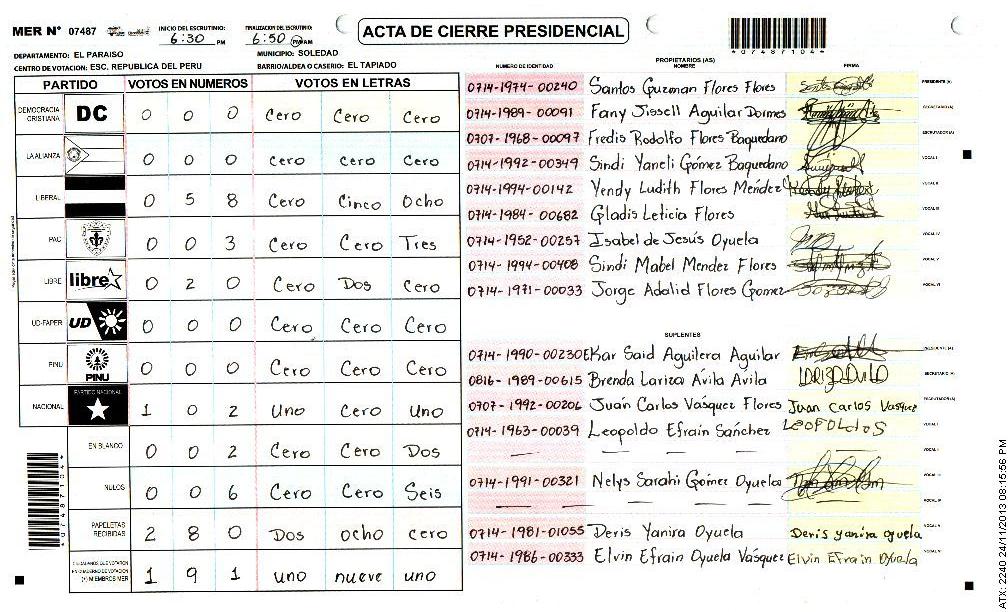 MER N° 07487
INICIO DEL ESCRUTINIO: 6:30 PM
FINALIZACION DEL ESCRUTINIO: 6:50 PM/AM
ACTA DE CIERRE PRESIDENCIAL
*07487104*
DEPARTAMENTO: EL PARAISO
MUNICIPIO: SOLEDAD
CENTRO DE VOTACION: ESC. REPUBLICA DEL PERU
BARRIO/ALDEA O CASERIO: EL TAPIADO
PARTIDO VOTOS EN NUMEROS VOTOS EN LETRAS
DEMOCRACIA CRISTIANA DC 0 0 0 Cero Cero Cero
LA ALIANZA 0 0 0 Cero Cero Cero
LIBERAL 0 5 8 Cero Cinco Ocho
PAC 0 0 3 Cero Cero Tres
LIBRE libre 0 2 0 Cero Dos Cero
UD-FAPER UD 0 0 0 Cero Cero Cero
PINU PINU 0 0 0 Cero Cero Cero
NACIONAL PARTIDO NACIONAL 1 0 2 Uno Cero Uno
EN BLANCO 0 0 2 Cero Cero Dos
NULOS 0 0 6 Cero Cero Seis
PAPELETAS RECIBIDAS 2 8 0 Dos ocho cero
CIUDADANOS QUE VOTARON EN CUADERNO DE VOTACION (+) MIEMBROS MER 1 9 1 uno nueve uno
*07487104*
PROPIETARIOS (AS)
NUMERO DE IDENTIDAD NOMBRE FIRMA
0714-1974-00240 Santos Guzman Flores Flores PRESIDENTE (A)
0714-1989-00091 Fany Jissell Aguilar Dormes SECRETARIO (A)
0707-1968-00097 Fredis Rodolfo Flores Baquedano ESCRUTADOR (A)
0714-1992-00349 Sindi Yaneli Gómez Baquedano VOCAL I
0714-1994-00142 Yendy Ludith Flores Mendez VOCAL II
0714-1984-00682 Gladis Leticia Flores VOCAL III
0714-1952-00257 Isabel de Jesús Oyuela VOCAL IV
0714-1994-00408 Sindi Mabel Mendez Flores VOCAL V
0714-1971-00033 Jorge Adalid Flores Gomez VOCAL VI
SUPLENTES
0714-1990-00230 Ekar Said Aguilera Aguilar PRESIDENTE (A)
0816-1989-00615 Brenda Lariza Avila Avila SECRETARIO (A)
0707-1992-00206 Juan Carlos Vasquez Flores Juan Carlos Vasquez ESCRUTADOR (A)
0714-1963-00039 Leopoldo Efrain Sánchez LEOPOLdoS VOCAL I
VOCAL II
0714-1991-00321 Nelys Sarahi Gómez Oyuela VOCAL III
VOCAL IV
0714-1981-01055 Deris Yanira Oyuela Deris yanira oyuela VOCAL V
0714-1986-00333 Elvin Efrain Oyuela Vasquez Elvin Efrain Oyuela VOCAL VI
ATX: 2240 24/11/2013 08:15:56 PM